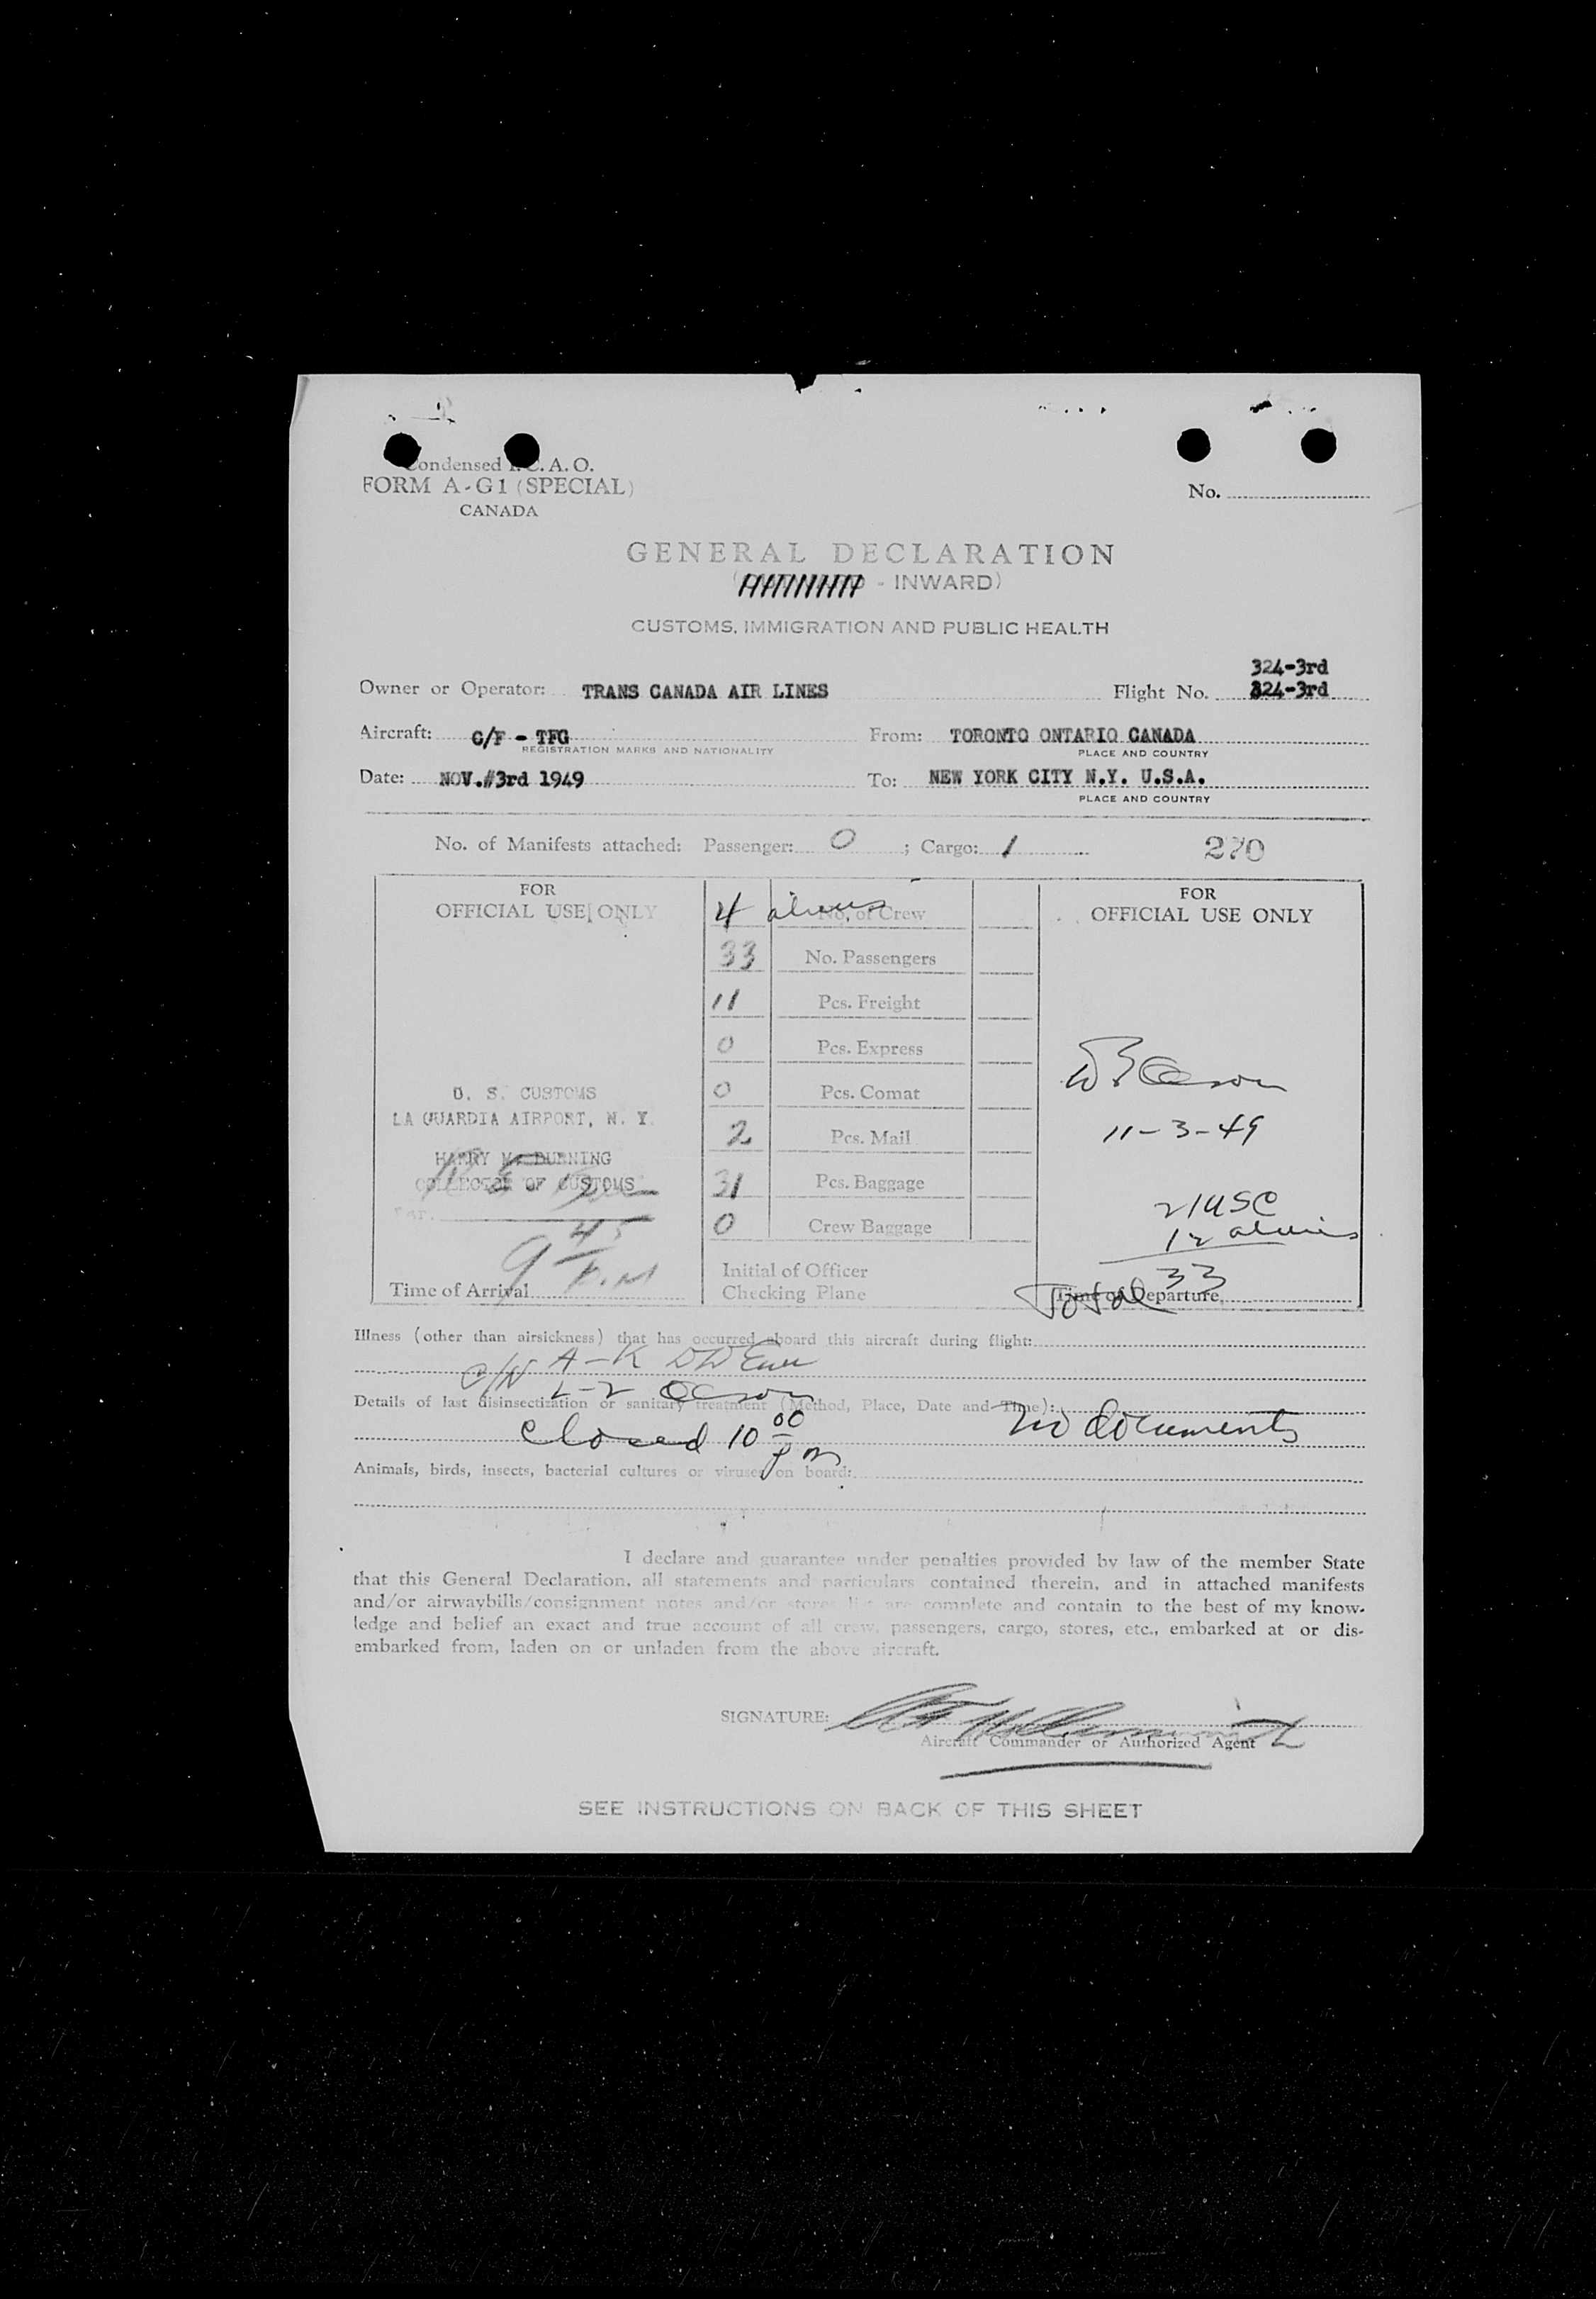 Condensed I.C.A.O.
FORM A-G1 (SPECIAL)
CANADA
No.
GENERAL DECLARATION
- INWARD)
CUSTOMS, IMMIGRATION AND PUBLIC HEALTH
324-3rd
Owner or Operator: TRANS CANADA AIR LINES Flight No. 324-3rd
Aircraft: C/F - TFG From: TORONTO ONTARIO CANADA
REGISTRATION MARKS AND NATIONALITY PLACE AND COUNTRY
Date: NOV.#3rd 1949 To: NEW YORK CITY N.Y. U.S.A.
PLACE AND COUNTRY
No. of Manifests attached: Passenger: 0 ; Cargo: 1 270
FOR
OFFICIAL USE ONLY
U. S. CUSTOMS
LA GUARDIA AIRPORT, N. Y.
HARRY M. DURNING
COLLECTOR OF CUSTOMS
Per.
9 45 P.M
Time of Arrival
4 aliens No. of Crew
33 No. Passengers
11 Pcs. Freight
0 Pcs. Express
0 Pcs. Comat
2 Pcs. Mail
31 Pcs. Baggage
0 Crew Baggage
Initial of Officer
Checking Plane
FOR
OFFICIAL USE ONLY
11-3-49
21 USC
12 aliens
Total 33
Time of Departure
Illness (other than airsickness) that has occurred aboard this aircraft during flight:
A-K
L-Z
Details of last disinsectization or sanitary treatment (Method, Place, Date and Time):
closed 10 00 pm no documents
Animals, birds, insects, bacterial cultures or viruses on board:
I declare and guarantee under penalties provided by law of the member State
that this General Declaration, all statements and particulars contained therein, and in attached manifests
and/or airwaybills/consignment notes and/or stores list are complete and contain to the best of my know-
ledge and belief an exact and true account of all crew, passengers, cargo, stores, etc., embarked at or dis-
embarked from, laden on or unladen from the above aircraft.
SIGNATURE:
Aircraft Commander or Authorized Agent
SEE INSTRUCTIONS ON BACK OF THIS SHEET